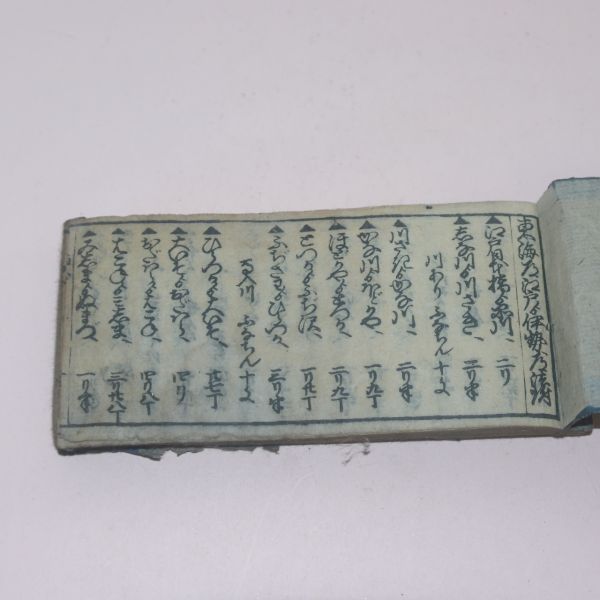 東海道江戸より伊勢道諸附
▲江戸日本橋より品川へ 二り
▲しな川より川さきへ 二り半
川あり ふなちん 十文
▲川さきよりかな川へ 二り半
▲かな川よりほどがや 一り九丁
▲ほどがやよりとつかへ 二り九丁
▲とつかよりふぢ沢へ 一り卅丁
▲ふぢさわよりひらつかへ 三り半
馬入川 ふなちん 十文
▲ひらつかより大いそへ 廿七丁
▲大いそよりおだはらへ 四り
▲おだはらよりはこねへ 四り八丁
▲はこねより三しまへ 三り廿八丁
▲三しまよりぬまづへ 一り半